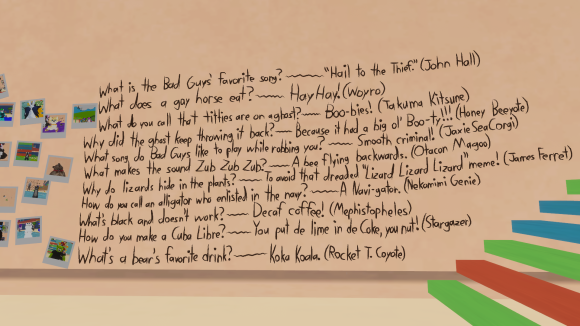 What is the Bad Guys' favorite song? "Hail to the Thief." (John Hall)
What does a gay horse eat? Hay Hay! (Woyro)
What do you call that titties are on a ghost? Boo-bies! (Takuma Kitsune)
Why did the ghost keep throwing it back? Because it had a big ol' Boo-ty!!! (Honey Beeyote)
What song do Bad Guys like to play while robbing you? Smooth criminal! (Jaxie SeaCorgi)
What makes the sound Zub Zub Zub? A bee flying backwards. (Otacon Magoo)
Why do lizards hide in the plants? To avoid that dreaded "Lizard Lizard Lizard" meme! (James Ferret)
How do you call an alligator who enlisted in the navy? A Navi-gator. (Nekomimi Genie)
What's black and doesn't work? Decaf coffee! (Mephistopheles)
How do you make a Cuba Libre? You put de lime in de Coke, you nut! (Stargazer)
What's a bear's favorite drink? Koka Koala. (Rocket T. Coyote)